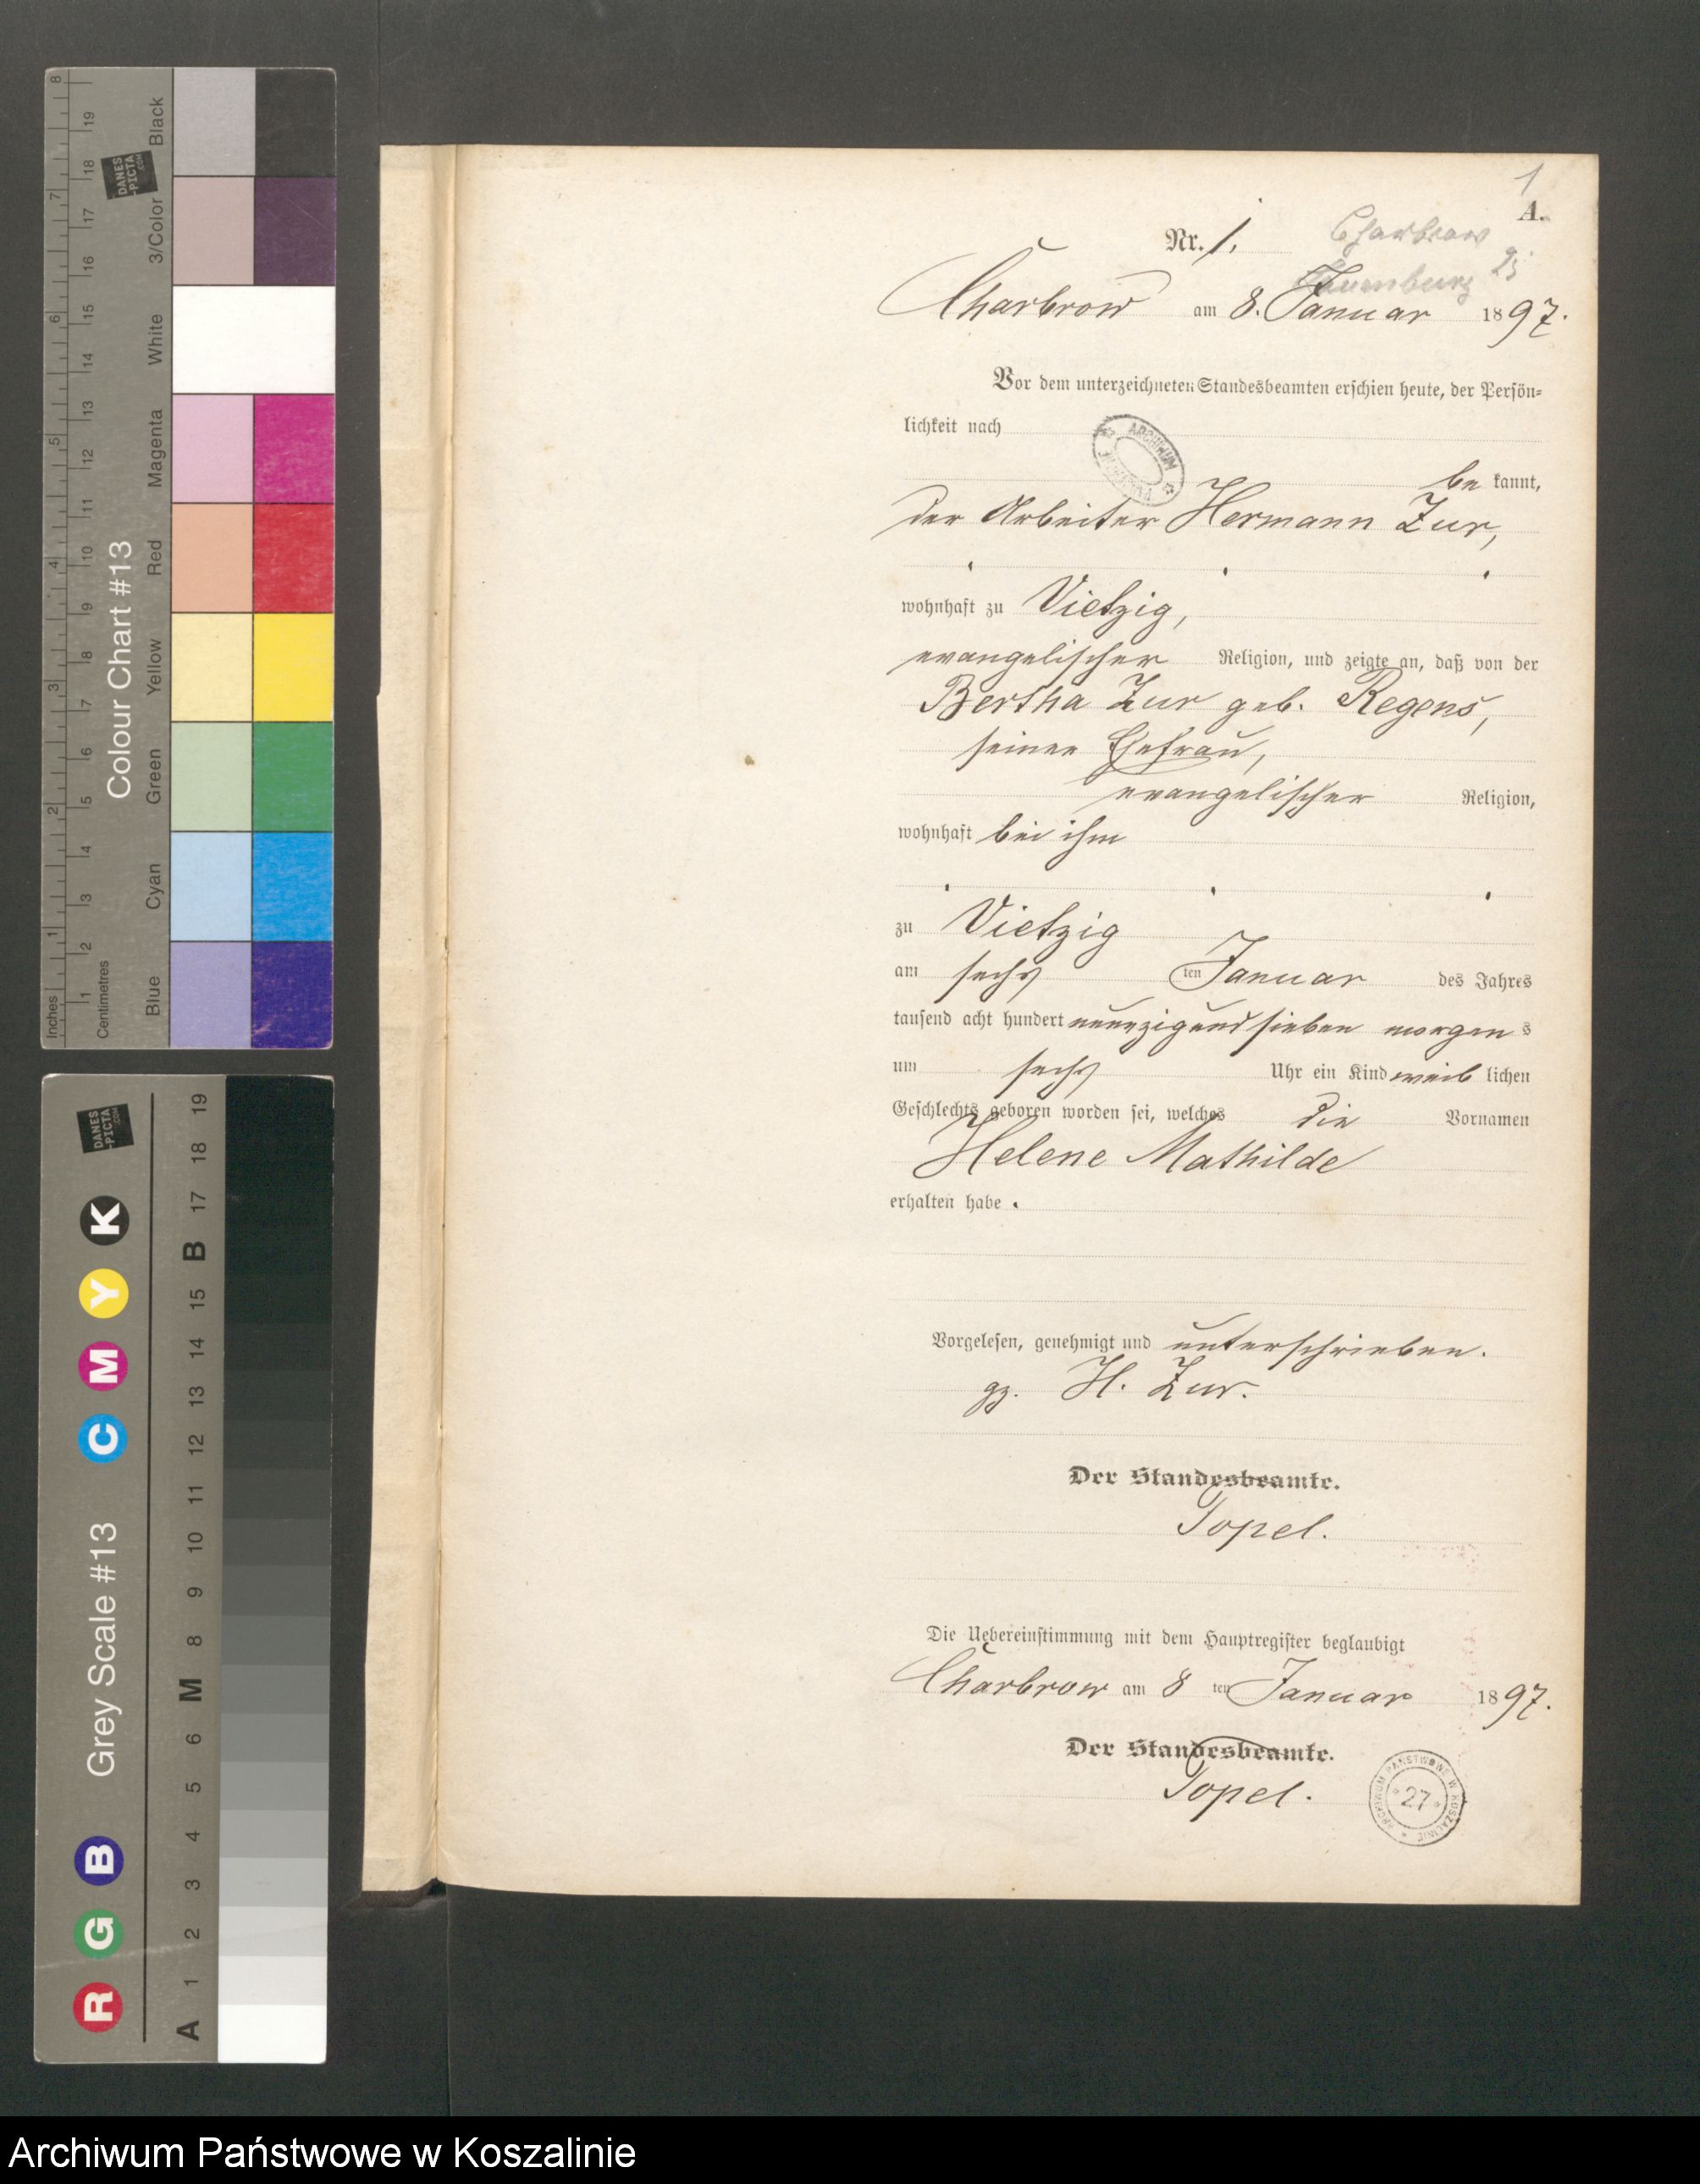 1
A.
Nr. 1.
Charbrow
Lauenburg
Charbrow am 8. Januar 1897.
Vor dem unterzeichneten Standesbeamten erschien heute, der Persön-
lichkeit nach
ARCHIWUM
be kannt,
der Arbeiter Hermann Zur,
wohnhaft zu Vietzig,
evangelischer Religion, und zeigte an, daß von der
Bertha Zur geb. Regens,
seiner Ehefrau,
evangelischer Religion,
wohnhaft bei ihm
zu Vietzig
am sechs ten Januar des Jahres
tausend acht hundert neunzig und sieben morgen s
um sechs Uhr ein Kind weib lichen
Geschlechts geboren worden sei, welches die Vornamen
Helene Mathilde
erhalten habe.
Vorgelesen, genehmigt und unterschrieben.
gz. H. Zur.
Der Standesbeamte.
Topel.
Die Uebereinstimmung mit dem Hauptregister beglaubigt
Charbrow am 8 ten Januar 1897.
Der Standesbeamte.
Topel.
ARCHIWUM PAŃSTWOWE W KOSZALINIE
27
Inches
1 2 3 4 5 6 7 8
Centimetres
1 2 3 4 5 6 7 8 9 10 11 12 13 14 15 16 17 18 19
Colour Chart #13
DANES
-PICTA
.COM
Blue Cyan Green Yellow Red Magenta White 3/Color Black
Grey Scale #13
DANES
-PICTA
.COM
R G B C M Y K
A 1 2 3 4 5 6 M 8 9 10 11 12 13 14 15 B 17 18 19
Archiwum Państwowe w Koszalinie